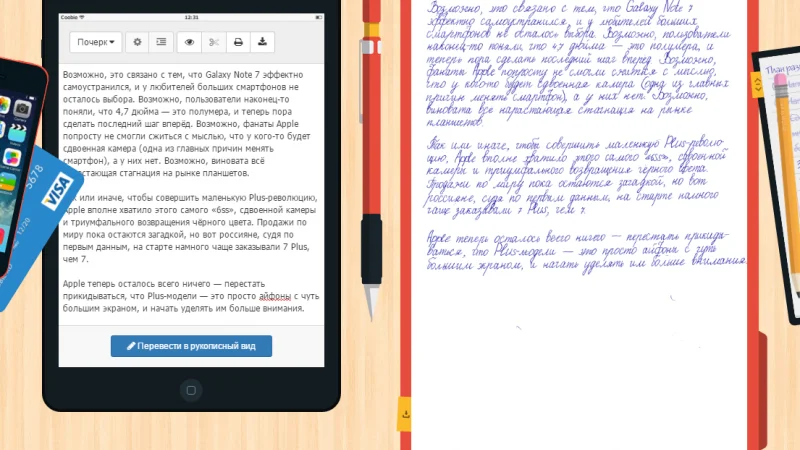 Coobis
12:31
Почерк
Возможно, это связано с тем, что Galaxy Note 7 эффектно
самоустранился, и у любителей больших смартфонов не
осталось выбора. Возможно, пользователи наконец-то
поняли, что 4,7 дюйма — это полумера, и теперь пора
сделать последний шаг вперёд. Возможно, фанаты Apple
попросту не смогли сжиться с мыслью, что у кого-то будет
сдвоенная камера (одна из главных причин менять
смартфон), а у них нет. Возможно, виновата всё
стагнация на рынке планшетов.
или иначе, чтобы совершить маленькую Plus-революцию,
Apple вполне хватило этого самого «6ss», сдвоенной камеры
и триумфального возвращения чёрного цвета. Продажи по
миру пока остаются загадкой, но вот россияне, судя по
первым данным, на старте намного чаще заказывали 7 Plus,
чем 7.
Apple теперь осталось всего ничего — перестать
прикидываться, что Plus-модели — это просто айфоны с чуть
большим экраном, и начать уделять им больше внимания.
Перевести в рукописный вид
5678
12/20
VISA
Возможно, это связано с тем, что Galaxy Note 7
эффектно самоустранился, и у любителей больших
смартфонов не осталось выбора. Возможно, пользователи
наконец-то поняли, что 4,7 дюйма — это полумера, и
теперь пора сделать последний шаг вперёд. Возможно,
фанаты Apple попросту не смогли сжиться с мыслью,
что у кого-то будет сдвоенная камера (одна из главных
причин менять смартфон), а у них нет. Возможно,
виновата всё нарастающая стагнация на рынке
планшетов.
Как или иначе, чтобы совершить маленькую Plus-револю-
цию, Apple вполне хватило этого самого «6ss», сдвоенной
камеры и триумфального возвращения чёрного цвета.
Продажи по миру пока остаются загадкой, но вот
россияне, судя по первым данным, на старте намного
чаще заказывали 7 Plus, чем 7.
Apple теперь осталось всего ничего — перестать прикиды-
ваться, что Plus-модели — это просто айфоны с чуть
большим экраном, и начать уделять им больше внимания.
План